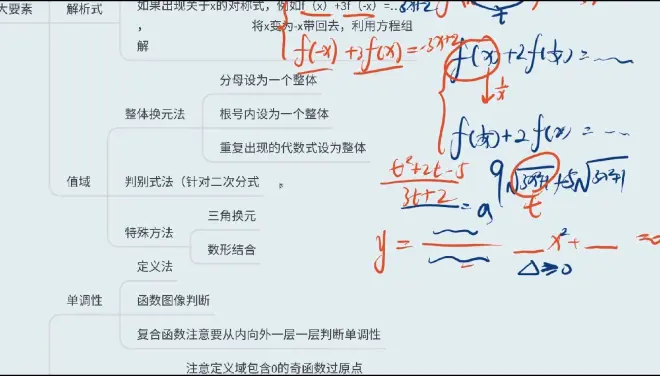 大要素
解析式
如果出现关于x的对称式，例如f（x）+3f（-x）=
，
将x变为-x带回去，利用方程组
解
f(-x)+3f(x)=-3x+2
f(x)+2f(1/x)=
1/x
f(1/x)+2f(x)=…
分母设为一个整体
整体换元法
根号内设为一个整体
重复出现的代数式设为整体
t²+2t-5
3t+2
t
值域
判别式法（针对二次分式
三角换元
特殊方法
数形结合
y=
x²+
=0
△≥0
定义法
单调性
函数图像判断
复合函数注意要从内向外一层一层判断单调性
注意定义域包含0的奇函数过原点